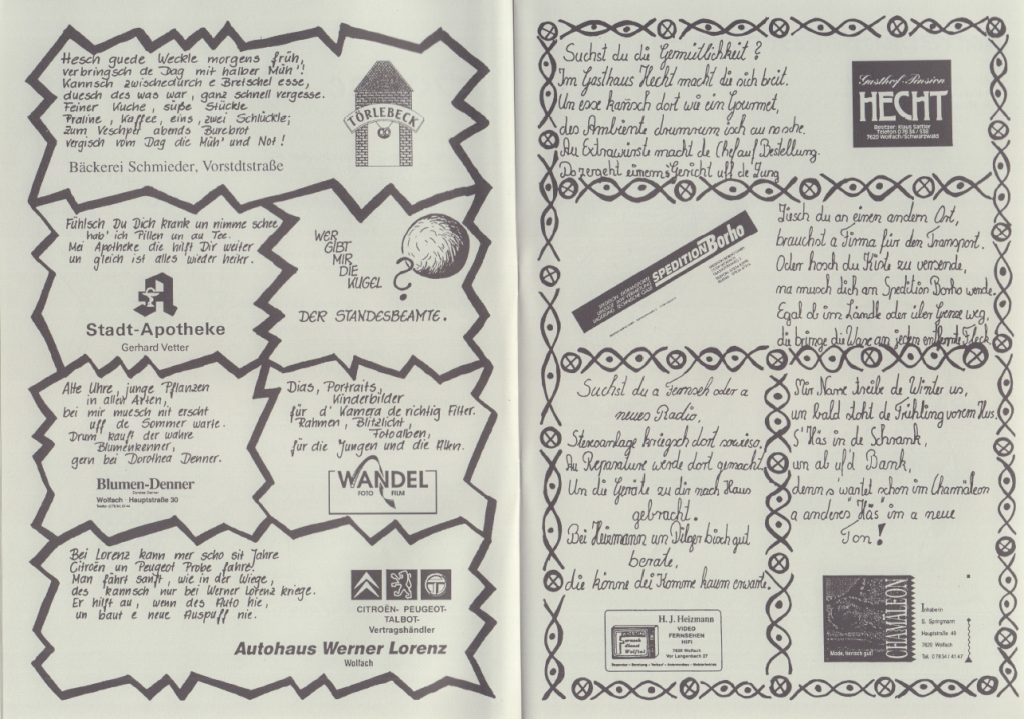 Hesch guede Weckle morgens früh,
verbringsch de Dag mit halber Müh'!
Kannsch zwischedurch e Bretschel esse,
duesch des was war, ganz schnell vergesse.
Feiner Kuche, süße Stückle
Praline, Kaffee, eins, zwei Schlückle;
Zum Veschper abends Burebrot
vergisch vom Dag die Müh' und Not!
Bäckerei Schmieder, Vorstdtstraße
TÖRLEBECK
Fühlsch Du Dich krank un nimme schee
hab' ich Pillen un au Tee.
Mei Apotheke die hilft Dir weiter
un gleich ist alles wieder heiter.
Stadt-Apotheke
Gerhard Vetter
WER
GIBT
MIR
DIE
KUGEL
?
DER STANDESBEAMTE.
Alte Uhre, junge Pflanzen
in allen Arten,
bei mir muesch nit erscht
uff de Sommer warte.
Drum kauft der wahre
Blumenkenner,
gern bei Dorothea Denner.
Blumen-Denner
Dorothea Denner
Wolfach Hauptstraße 30
Dias, Portraits,
Kinderbilder
für d' Kamera de richtig Filter.
Rahmen, Blitzlicht,
Fotoalben,
für die Jungen und die Alten.
WANDEL
FOTO FILM
Bei Lorenz kann mer scho sit Jahre
Citroën un Peugeot Probe fahre!
Man fährt sanft, wie in der Wiege,
des kannsch nur bei Werner Lorenz kriege.
Er hilft au, wenn des Auto hie,
un baut e neue Auspuff nie.
CITROËN- PEUGEOT-
TALBOT-
Vertragshändler
Autohaus Werner Lorenz
Wolfach
Suchst du die Gemütlichkeit?
Im Gasthaus Hecht macht die sich breit.
Un esse kannsch dort wie ein Gourmet,
des Ambiente drumrum isch au no sche.
Au Extrawünsts macht de Chef auf Bestellung.
Do zergeht eimems Gericht uff de Zung
Gasthof-Pension
HECHT
Besitzer: Klaus Sattler
Telefon 0 78 34 / 538
7620 Wolfach/Schwarzwald
SPEDITION Borho
Züsch du an einen andern Ort,
brauchst a Firma für den Transport.
Oder hosch du Kiste zu versende,
na musch dich an Spedition Borho wende.
Egal ob im Ländle oder über Grenze weg,
die bringe die Ware an jedem entfernte Fleck.
Suchst du a Fernseh oder a
neues Radio,
Stereoanlage kriegsch dort sowieso,
Au Reparature werde dort gemacht,
Un die Geräte zu dir nach Haus
gebracht.
Bei Heizmann un Dilger bisch gut
berate,
die könne dei Komme kaum erwarte.
H. J. Heizmann
VIDEO
FERNSEHEN
HIFI
7620 Wolfach
Vor Langenbach 27
Mir Narre treibe de Winter us,
un bald stoht de Frühling vorem Hus.
S' Häs in de Schrank,
un ab uf'd Bank,
denn s' wartet schon im Chamäleon
a anderes "Häs" im a neue
Ton!
CHAMÄLEON
Mode, tierisch gut!
Inhaberin
S. Springmann
Hauptstraße 40
7620 Wolfach
Tel. 0 78 34 / 41 47